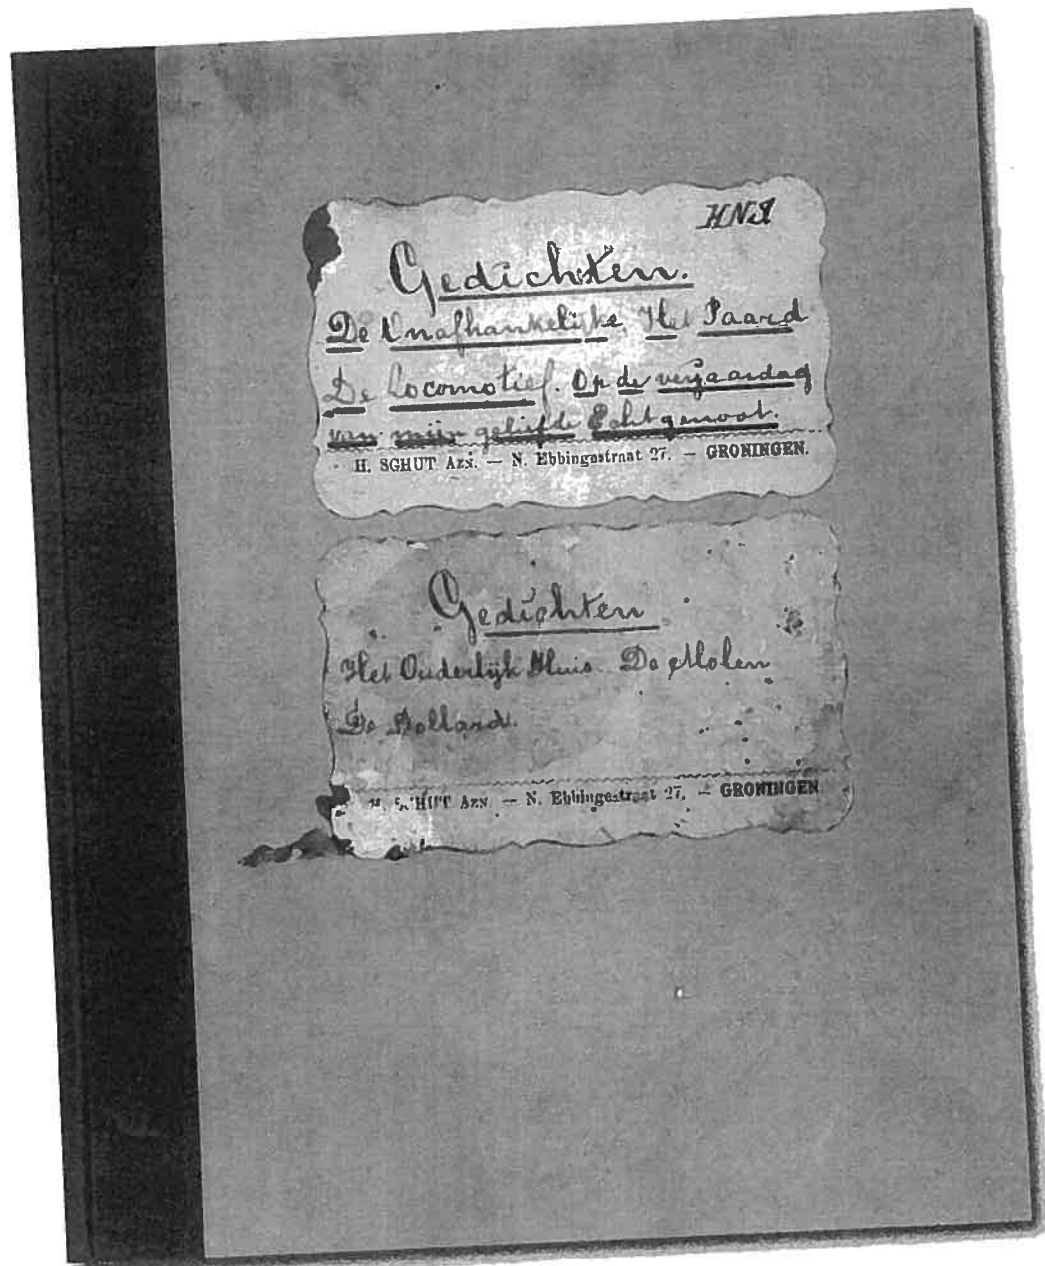 HNJ
Gedichten.
De Onafhankelijke Het Paard
De Locomotief. Op de verjaardag
van mijn geliefde Echtgenoot.
H. SCHUT Azn. — N. Ebbingestraat 27. — GRONINGEN.
Gedichten
Het Ouderlijk Huis De Molen
De Dollard.
H. SCHUT Azn. — N. Ebbingestraat 27. — GRONINGEN